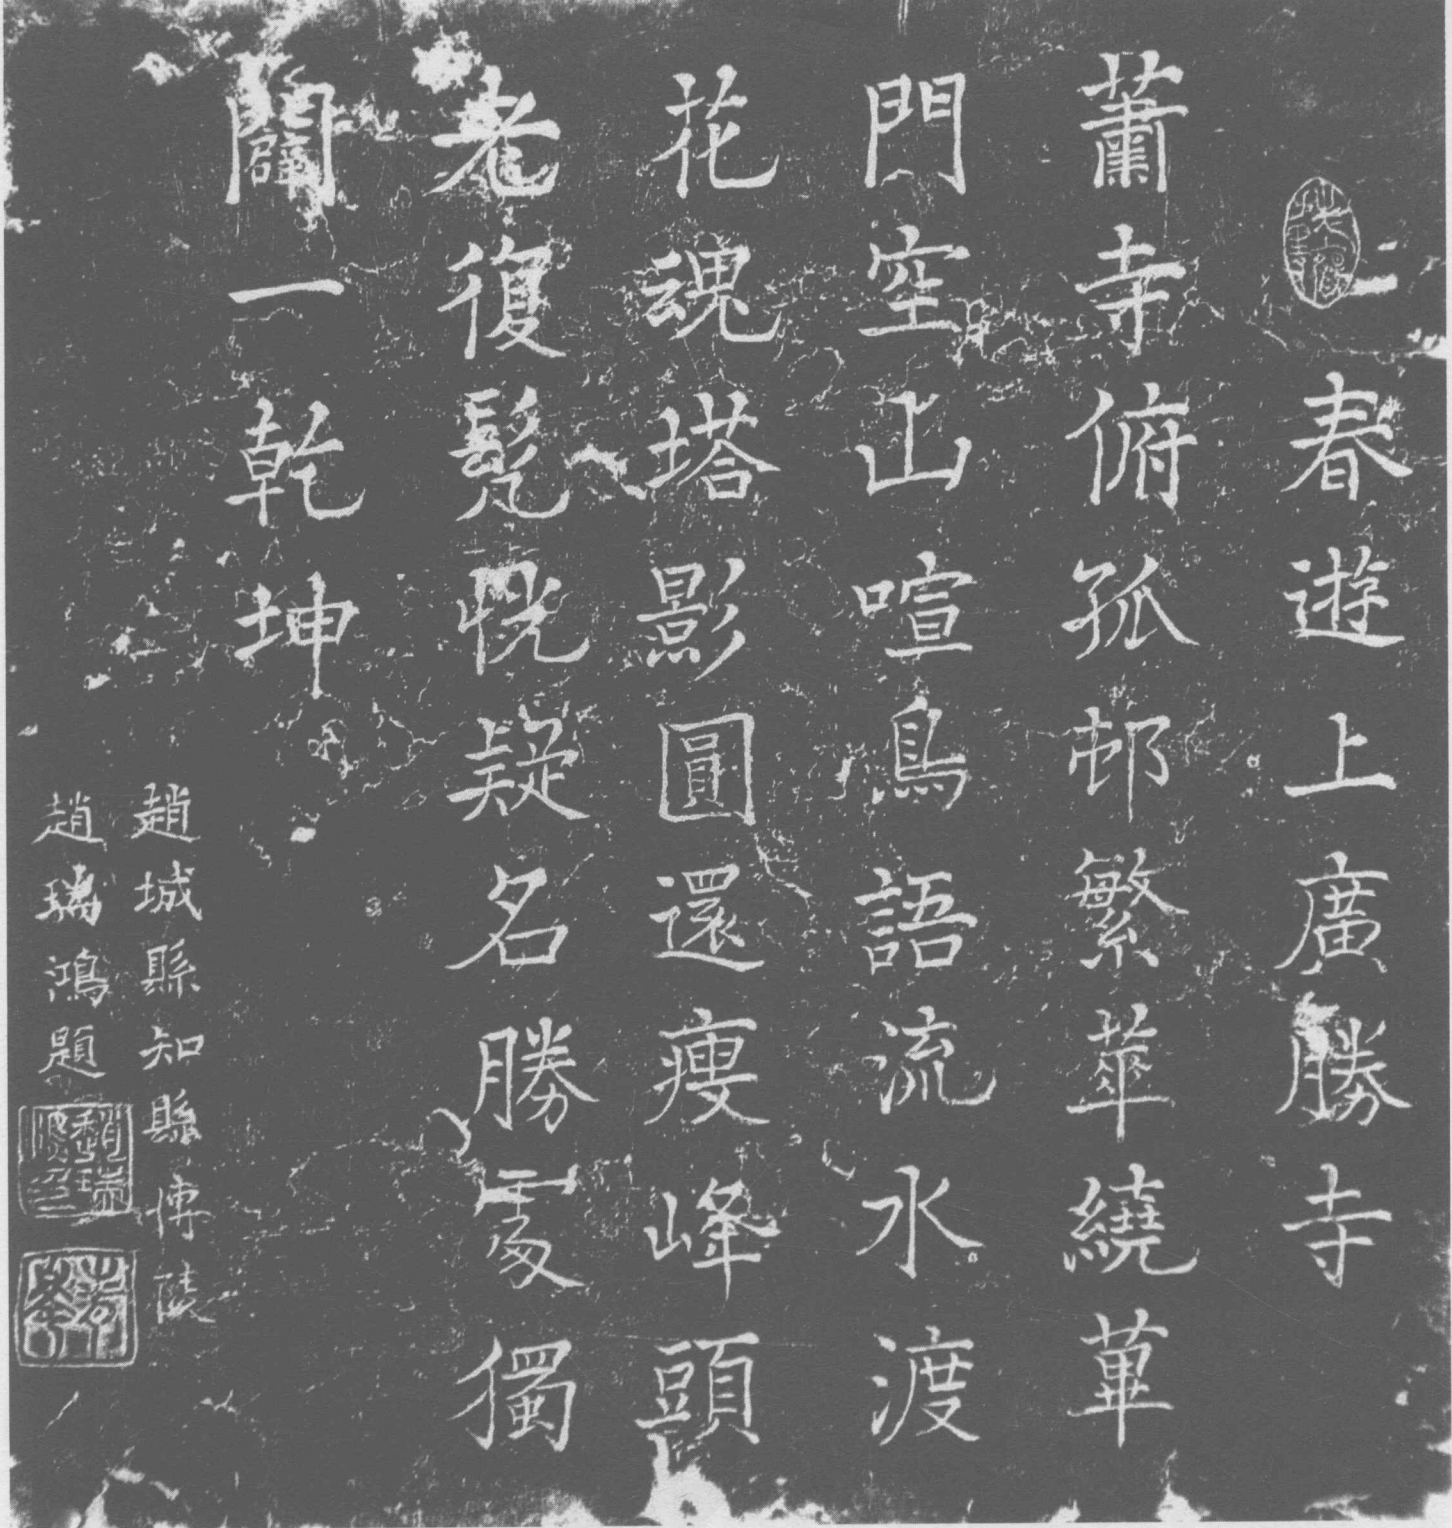 春遊上廣勝寺
蕭寺俯孤邨繁華繞蓽
門空山喧鳥語流水渡
花魂塔影圓還瘦峰頭
老復髡恍疑名勝處獨
闢一乾坤
趙城縣知縣博陵
趙鴻題